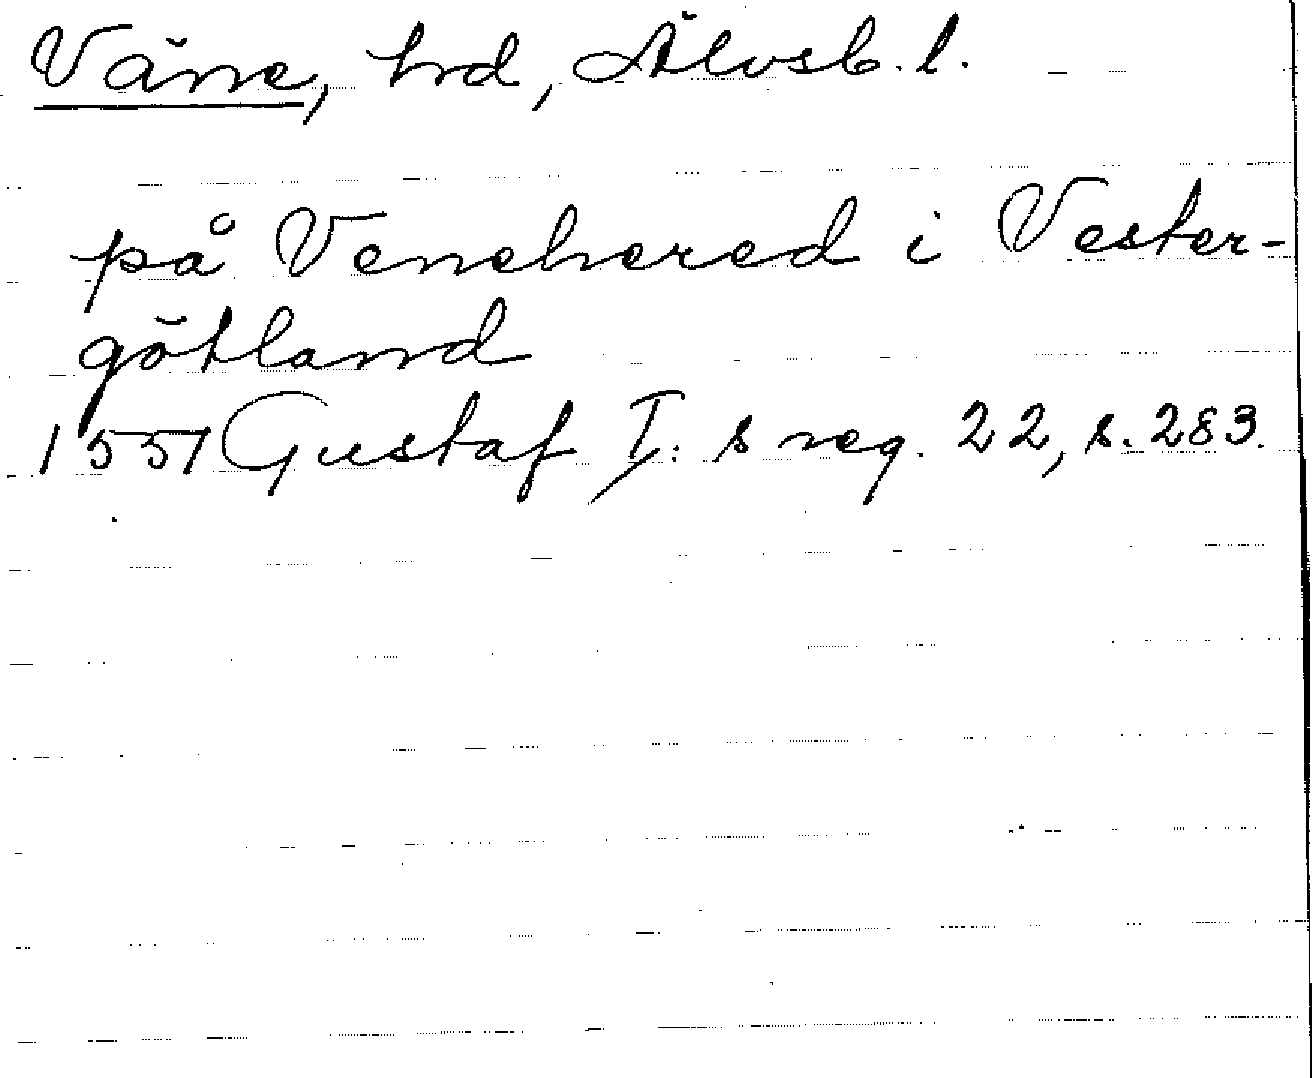 Väne, hrd, Älvsb. l.
på Venehered i Vester-
götland
1551 Gustaf I:s reg. 22, s. 283.